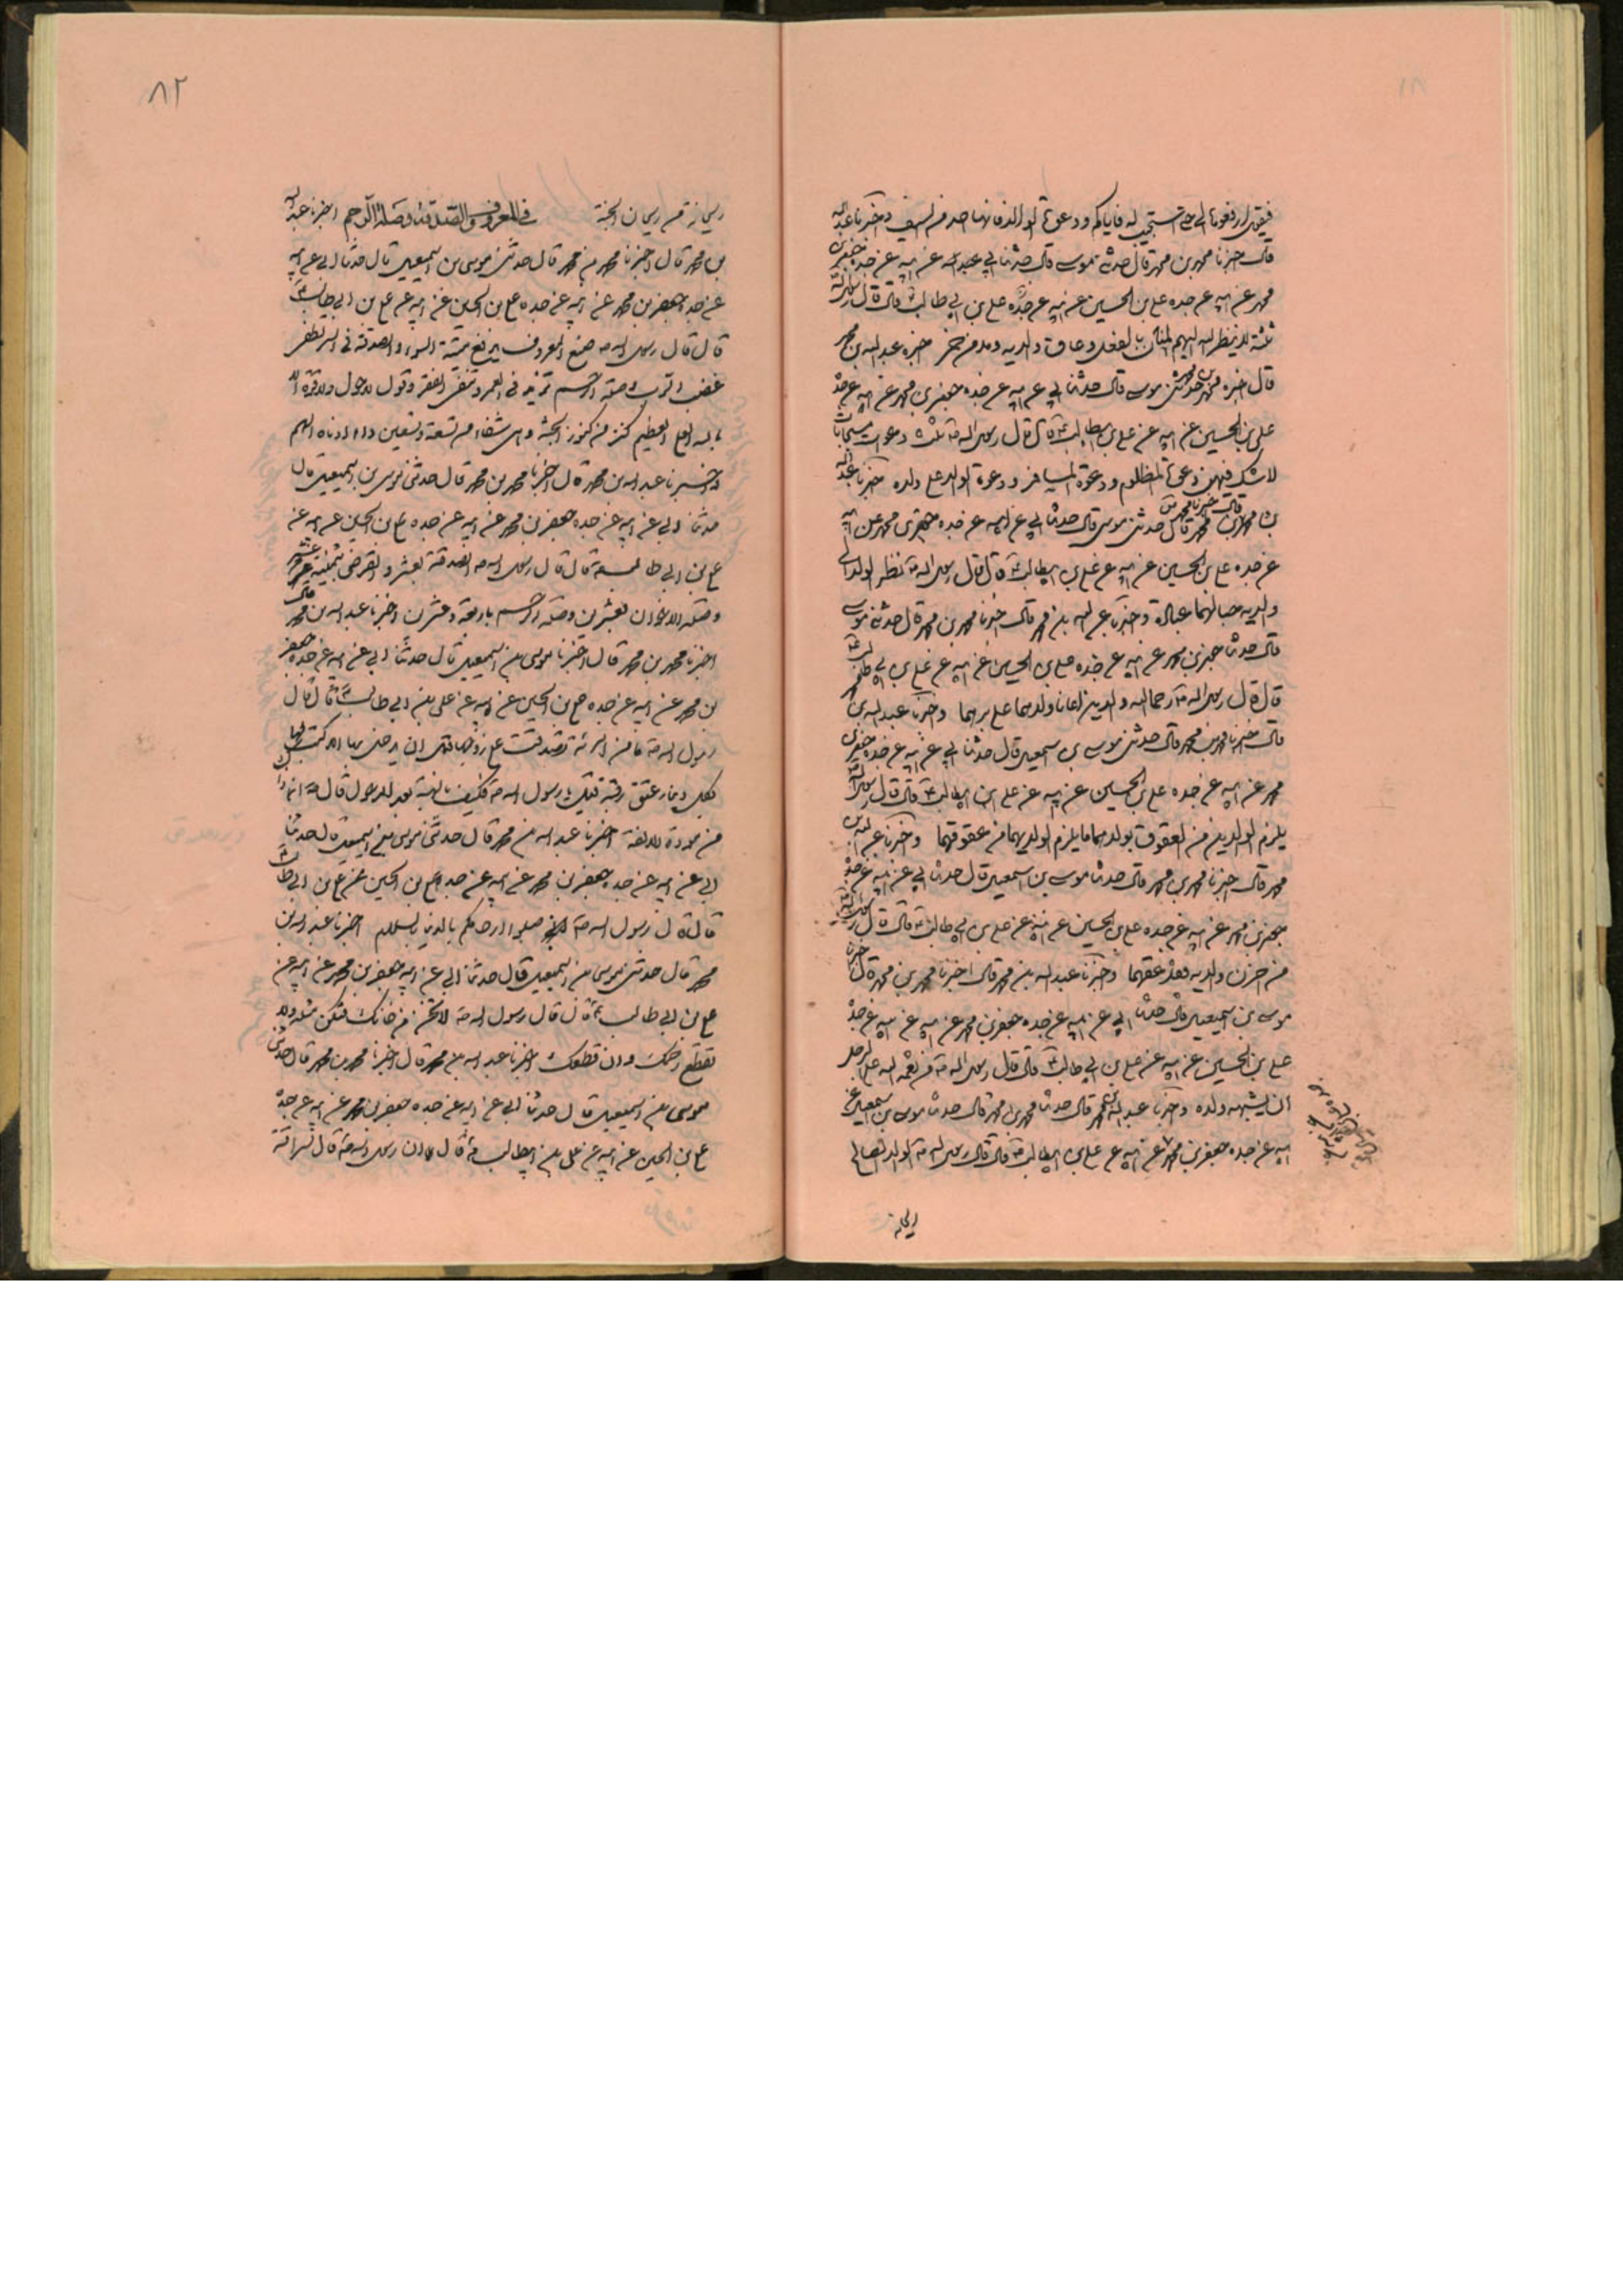 فيقول ارفعوها الي حتى استجيب له فاياكم ودعوة الوالد فانها احد من السيف واخبرنا عبد الله
قال اخبرنا محمد بن محمد قال حدثني موسى قال حدثنا ابي عن ابيه عن جده جعفر بن
محمد عن ابيه عن جده علي بن الحسين عن ابيه عن جده علي بن ابي طالب ع قال قال رسول الله ص
ثلثة لا ينظر الله اليهم المنان بالفعل وعاق والديه ومدمن خمر اخبرنا عبد الله بن محمد
قال اخبرنا محمد حدثني موسى قال حدثنا ابي عن ابيه عن جده جعفر بن محمد عن ابيه عن جده
علي بن الحسين عن ابيه عن علي بن ابيطالب ع قال قال رسول الله ص ثلث دعوات مستجابات
لا شك فيهن دعوة المظلوم ودعوة المسافر ودعوة الوالد على ولده اخبرنا عبد الله
بن محمد قال اخبرنا محمد بن محمد قال حدثني موسى قال حدثنا ابي عن ابيه عن جده جعفر بن محمد عن ابيه
عن جده علي بن الحسين عن ابيه عن علي بن ابيطالب ع قال قال رسول الله ص نظر الولد الى
والديه حبا لهما عبادة واخبرنا عبد الله بن محمد قال اخبرنا محمد بن محمد قال حدثني موسى
قال حدثنا جعفر بن محمد عن ابيه عن جده علي بن الحسين عن ابيه عن علي بن ابي طالب ع
قال قال رسول الله ص رحم الله والدين اعانا ولدهما على برهما واخبرنا عبد الله بن محمد
قال اخبرنا محمد بن محمد قال حدثني موسى بن اسمعيل قال حدثنا ابي عن ابيه عن جده جعفر بن
محمد عن ابيه عن جده علي بن الحسين عن ابيه عن علي بن ابيطالب ع قال قال رسول الله ص
يلزم الوالدين من العقوق بولدهما ما يلزم الولد بهما من عقوقهما واخبرنا عبد الله بن
محمد قال اخبرنا محمد بن محمد قال حدثنا موسى بن اسمعيل قال حدثنا ابي عن ابيه عن جده
جعفر بن محمد عن ابيه عن جده علي بن الحسين عن ابيه عن علي بن ابي طالب ع قال قال رسول الله ص
من حزن والديه فقد عقهما واخبرنا عبد الله بن محمد قال اخبرنا محمد بن محمد قال اخبرنا
موسى بن اسمعيل قال حدثنا ابي عن ابيه عن جده جعفر بن محمد عن ابيه عن جده
علي بن الحسين عن ابيه عن علي بن ابي طالب ع قال قال رسول الله ص من نعمة الله على الرجل
ان يشبهه ولده واخبرنا عبد الله بن محمد قال حدثنا محمد بن محمد قال حدثنا موسى بن اسمعيل عن
ابيه عن جده جعفر بن محمد عن ابيه عن علي بن ابيطالب ع قال قال رسول الله ص الولد الصالح
ريحانة
٨٢
ريحانة من ريحان الجنة في المعروف والصدقة وصلة الرحم اخبرنا عبد الله
بن محمد قال اخبرنا محمد بن محمد قال حدثني موسى بن اسمعيل قال حدثنا ابي عن ابيه
عن جده جعفر بن محمد عن ابيه عن جده علي بن الحسين عن ابيه عن علي بن ابي طالب ع
قال قال رسول الله ص صنيع المعروف يدفع ميتة السوء والصدقة في السر تطفئ
غضب الرب وصلة الرحم تزيد في العمر وتنفي الفقر وقول لا حول ولا قوة الا
بالله العلي العظيم كنز من كنوز الجنة وهي شفاء من تسعة وتسعين داء ادناه الهم
واخبرنا عبد الله بن محمد قال اخبرنا محمد بن محمد قال حدثني موسى بن اسمعيل قال
حدثنا ابي عن ابيه عن جده جعفر بن محمد عن ابيه عن جده علي بن الحسين عن ابيه عن
علي بن ابي طالب ع قال قال رسول الله ص الصدقة بعشر والقرض بثمانية عشر
وصلة الاخوان بعشرين وصلة الرحم باربعة وعشرين اخبرنا عبد الله بن محمد قال
اخبرنا محمد بن محمد قال اخبرنا موسى بن اسمعيل قال حدثنا ابي عن ابيه عن جده جعفر
بن محمد عن ابيه عن جده علي بن الحسين عن ابيه عن علي بن ابي طالب ع قال قال
رسول الله ص ما من امرئة تصدقت على زوجها قبل ان يدخل بها الا كتب الله لها
بكل دينار عتق رقبة قيل يا رسول الله ص فكيف بالهبة بعد الدخول قال انما ذلك
من مودة الالفة اخبرنا عبد الله بن محمد قال حدثني موسى بن اسمعيل قال حدثنا
ابي عن ابيه عن جده جعفر بن محمد عن ابيه عن جده علي بن الحسين عن علي بن ابي طالب ع
قال قال رسول الله ص صلوا ارحامكم بالدنيا بالسلام اخبرنا عبد الله بن
محمد قال حدثني موسى بن اسمعيل قال حدثنا ابي عن ابيه جعفر بن محمد عن ابيه عن
علي بن ابي طالب ع قال قال رسول الله ص لا تخن من خانك فتكن مثله ولا
تقطع رحمك وان قطعك اخبرنا عبد الله بن محمد قال اخبرنا محمد بن محمد قال حدثني
موسى بن اسمعيل قال حدثنا ابي عن ابيه عن جده جعفر بن محمد عن ابيه عن جده
علي بن الحسين عن ابيه عن علي بن ابيطالب ع قال ان رسول الله ص قال سراقة